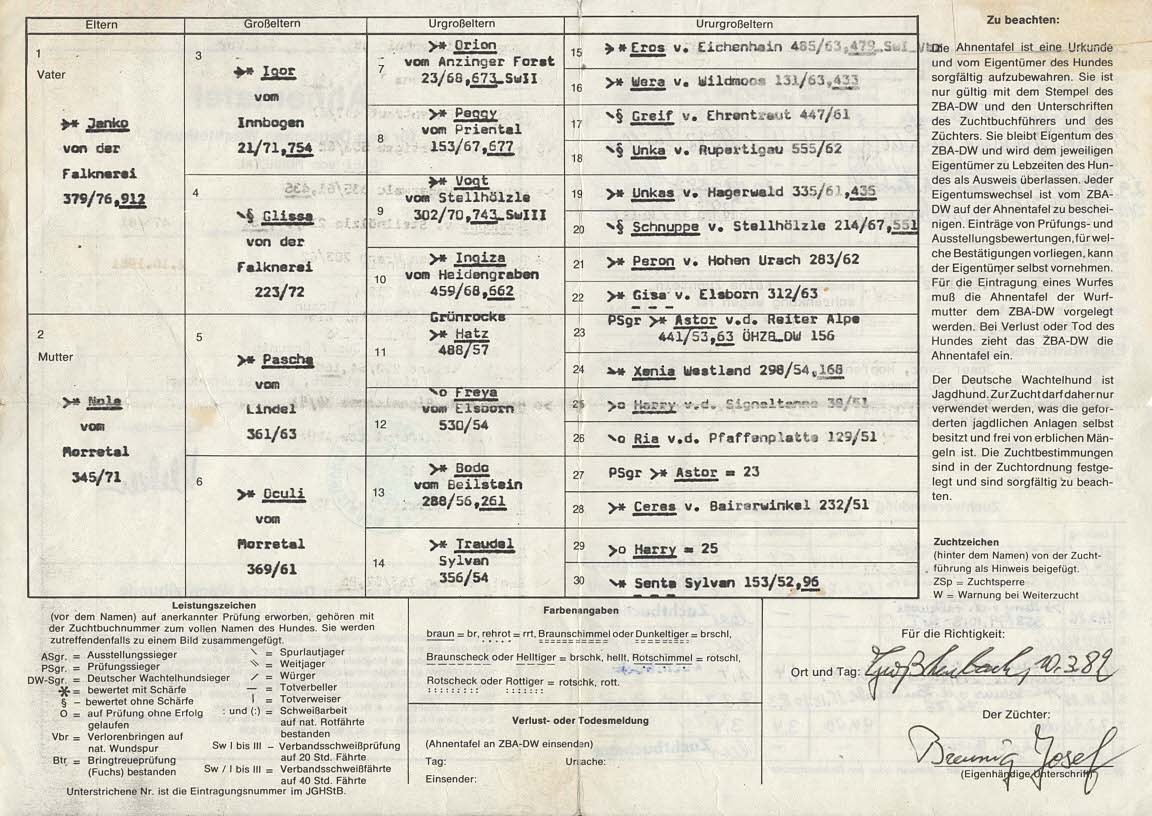 Eltern
Großeltern
Urgroßeltern
Ururgroßeltern
1
Vater
>* Janko
von der
Falknerei
379/76,912
2
Mutter
>* Nola
vom
Morretal
345/71
3
>* Igor
vom
Innbogen
21/71,754
4
\§ Glissa
von der
Falknerei
223/72
5
>* Pascha
vom
Lindel
361/63
6
>* Oculi
vom
Morretal
369/61
7
>* Orion
vom Anzinger Forst
23/68,673_SwII
8
>* Peggy
vom Priental
153/67,677
9
>* Vogt
vom Stellhölzle
302/70,743_SwIII
10
>* Ingiza
vom Heidengraben
459/68,662
11
Grünrocks
>* Hatz
488/57
12
\o Freya
vom Elsborn
530/54
13
>* Bodo
vom Beilstein
288/56,261
14
>* Traudel
Sylvan
356/54
15 >* Eros v. Eichenhain 485/63,479_SwI
16 >* Wera v. Wildmoos 131/63,433
17 \§ Greif v. Ehrentraut 447/61
18 \§ Unka v. Rupertigau 555/62
19 >* Unkas v. Hagerwald 335/61,435
20 \§ Schnuppe v. Stellhölzle 214/67,551
21 >* Peron v. Hohen Urach 283/62
22 >* Gisa v. Elsborn 312/63
23 PSgr >* Astor v.d. Reiter Alpe
441/53,63 ÖHZB_DW 156
24 \* Xenia Westland 298/54,168
25 >o Harry v.d. Signaltanne 38/51
26 \o Ria v.d. Pfaffenplatte 129/51
27 PSgr >* Astor = 23
28 >* Ceres v. Bairerwinkel 232/51
29 >o Harry = 25
30 \* Senta Sylvan 153/52,96
Zu beachten:
Die Ahnentafel ist eine Urkunde
und vom Eigentümer des Hundes
sorgfältig aufzubewahren. Sie ist
nur gültig mit dem Stempel des
ZBA-DW und den Unterschriften
des Zuchtbuchführers und des
Züchters. Sie bleibt Eigentum des
ZBA-DW und wird dem jeweiligen
Eigentümer zu Lebzeiten des Hun-
des als Ausweis überlassen. Jeder
Eigentumswechsel ist vom ZBA-
DW auf der Ahnentafel zu beschei-
nigen. Einträge von Prüfungs- und
Ausstellungsbewertungen, für wel-
che Bestätigungen vorliegen, kann
der Eigentümer selbst vornehmen.
Für die Eintragung eines Wurfes
muß die Ahnentafel der Wurf-
mutter dem ZBA-DW vorgelegt
werden. Bei Verlust oder Tod des
Hundes zieht das ZBA-DW die
Ahnentafel ein.
Der Deutsche Wachtelhund ist
Jagdhund. Zur Zucht darf daher nur
verwendet werden, was die gefor-
derten jagdlichen Anlagen selbst
besitzt und frei von erblichen Män-
geln ist. Die Zuchtbestimmungen
sind in der Zuchtordnung festge-
legt und sind sorgfältig zu beach-
ten.
Zuchtzeichen
(hinter dem Namen) von der Zucht-
führung als Hinweis beigefügt.
ZSp = Zuchtsperre
W = Warnung bei Weiterzucht
Leistungszeichen
(vor dem Namen) auf anerkannter Prüfung erworben, gehören mit
der Zuchtbuchnummer zum vollen Namen des Hundes. Sie werden
zutreffendenfalls zu einem Bild zusammengefügt.
ASgr. = Ausstellungssieger
PSgr. = Prüfungssieger
DW-Sgr. = Deutscher Wachtelhundsieger
* = bewertet mit Schärfe
§ - bewertet ohne Schärfe
O = auf Prüfung ohne Erfolg
gelaufen
Vbr = Verlorenbringen auf
nat. Wundspur
Btr. = Bringtreueprüfung
(Fuchs) bestanden
\ = Spurlautjager
\\ = Weitjager
/ = Würger
— = Totverbeller
| = Totverweiser
: und (:) = Schweißarbeit
auf nat. Rotfährte
bestanden
Sw I bis III – Verbandsschweißprüfung
auf 20 Std. Fährte
Sw / I bis III = Verbandsschweißfährte
auf 40 Std. Fährte
Unterstrichene Nr. ist die Eintragungsnummer im JGHStB.
Farbenangaben
braun = br, rehrot = rrt, Braunschimmel oder Dunkeltiger = brschl,
Braunscheck oder Helltiger = brschk, hellt, Rotschimmel = rotschl,
Rotscheck oder Rottiger = rotschk, rott.
Verlust- oder Todesmeldung
(Ahnentafel an ZBA-DW einsenden)
Tag:
Ursache:
Einsender:
Für die Richtigkeit:
Ort und Tag:
Der Züchter:
Breunig Josef
(Eigenhändige Unterschrift)